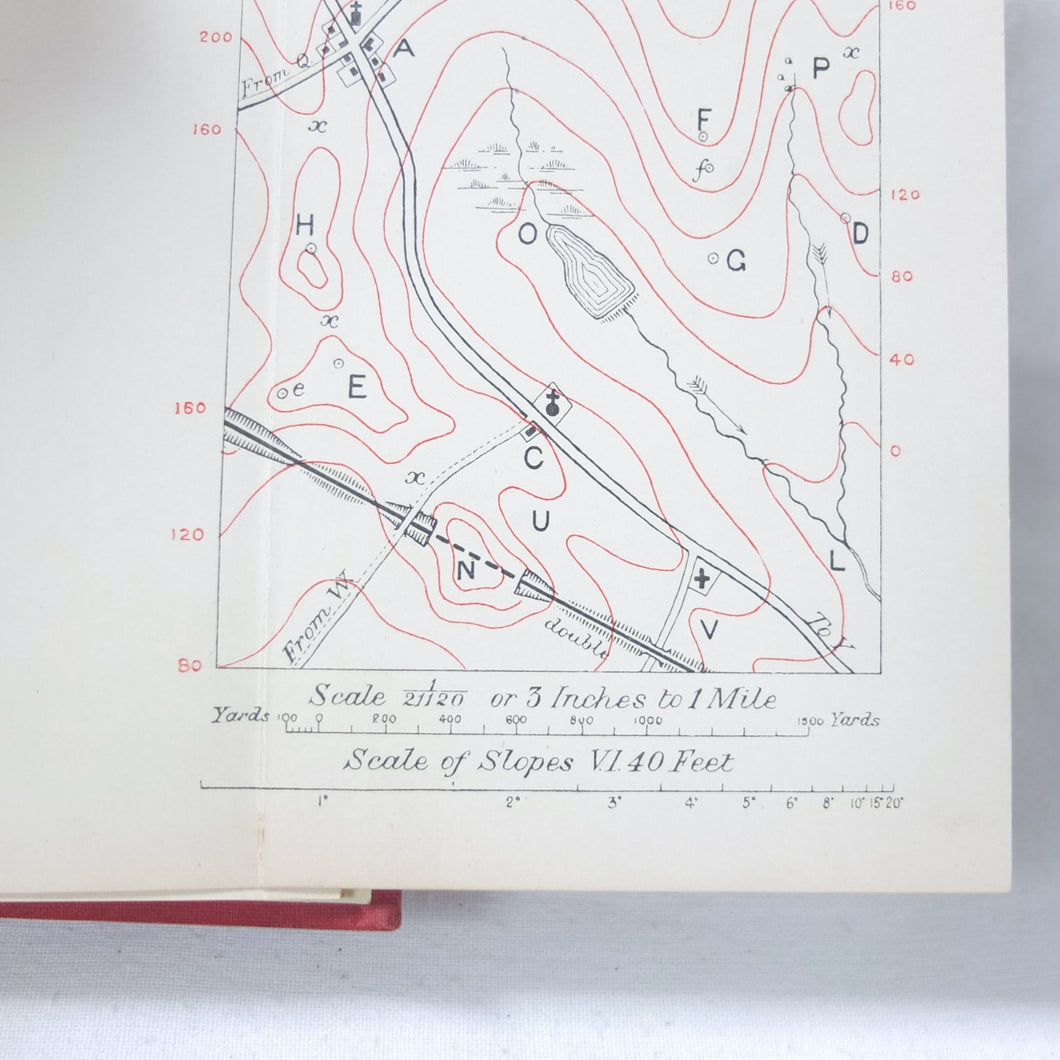 160
200
A
From Q.
x
P
160
x
F
f
120
H
O
G
D
80
x
40
E
e
160
C
0
x
U
120
N
L
From W.
double
V
To Y
80
Scale 1/21120 or 3 Inches to 1 Mile
Yards 100 0 200 400 600 800 1000 1500 Yards
Scale of Slopes V.I. 40 Feet
1° 2° 3° 4° 5° 6° 8° 10° 15° 20°